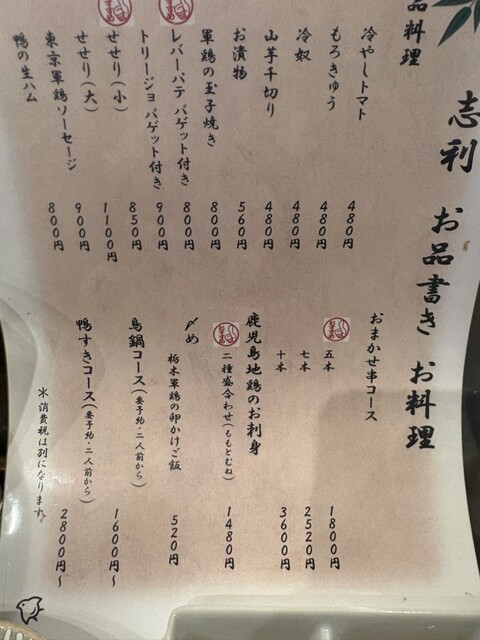 志利 お品書き お料理
品料理
冷やしトマト 480円
もろきゅう 480円
冷奴 480円
山芋千切り 480円
お漬物 560円
軍鶏の玉子焼き 800円
レバーパテ バゲット付き 800円
トリージョ バゲット付き 900円
せせり(小) 850円
せせり(大) 1100円
東京軍鶏ソーセージ 900円
鴨の生ハム 800円
おまかせ串コース
五本 1800円
七本 2520円
十本 3600円
鹿児島地鶏のお刺身
二種盛合わせ(ももとむね) 1480円
〆め
栃木軍鶏の卵かけご飯 520円
鳥鍋コース(要予約・二人前から) 1600円〜
鴨すきコース(要予約・二人前から) 2800円〜
＊消費税は別になります。